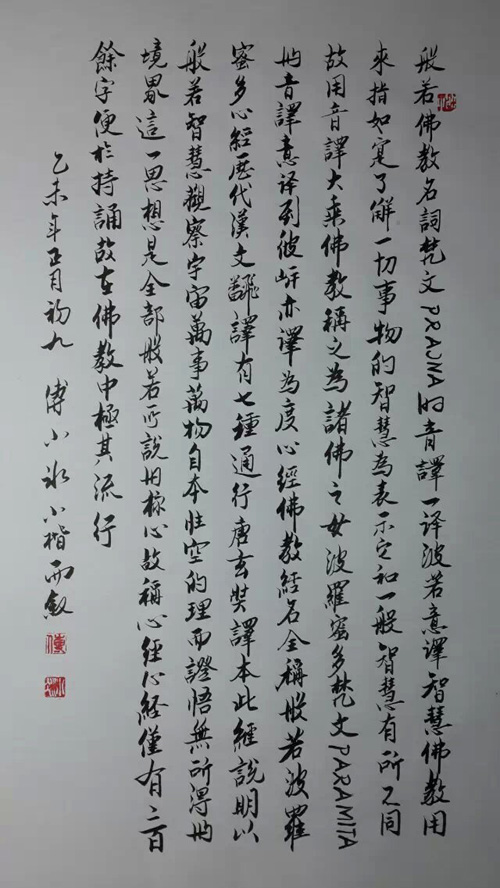 般若佛教名詞梵文PRAJNA的音譯一译波若意譯智慧佛教用
來指如寔了解一切事物的智慧為表示它和一般智慧有所不同
故用音譯大乘佛教稱之為諸佛之母波羅蜜多梵文PARAMITA
的音譯意译到彼岸亦譯為度心經佛教經名全稱般若波羅
蜜多心經歷代漢文翻譯有七種通行唐玄奘譯本此經說明以
般若智慧觀察宇宙萬事萬物自本性空的理而證悟無所得的
境界這一思想是全部般若所說的核心故稱心經心経僅有二百
餘字便於持誦故在佛教中極其流行
乙未年正月初九 傅小冰小楷而敘